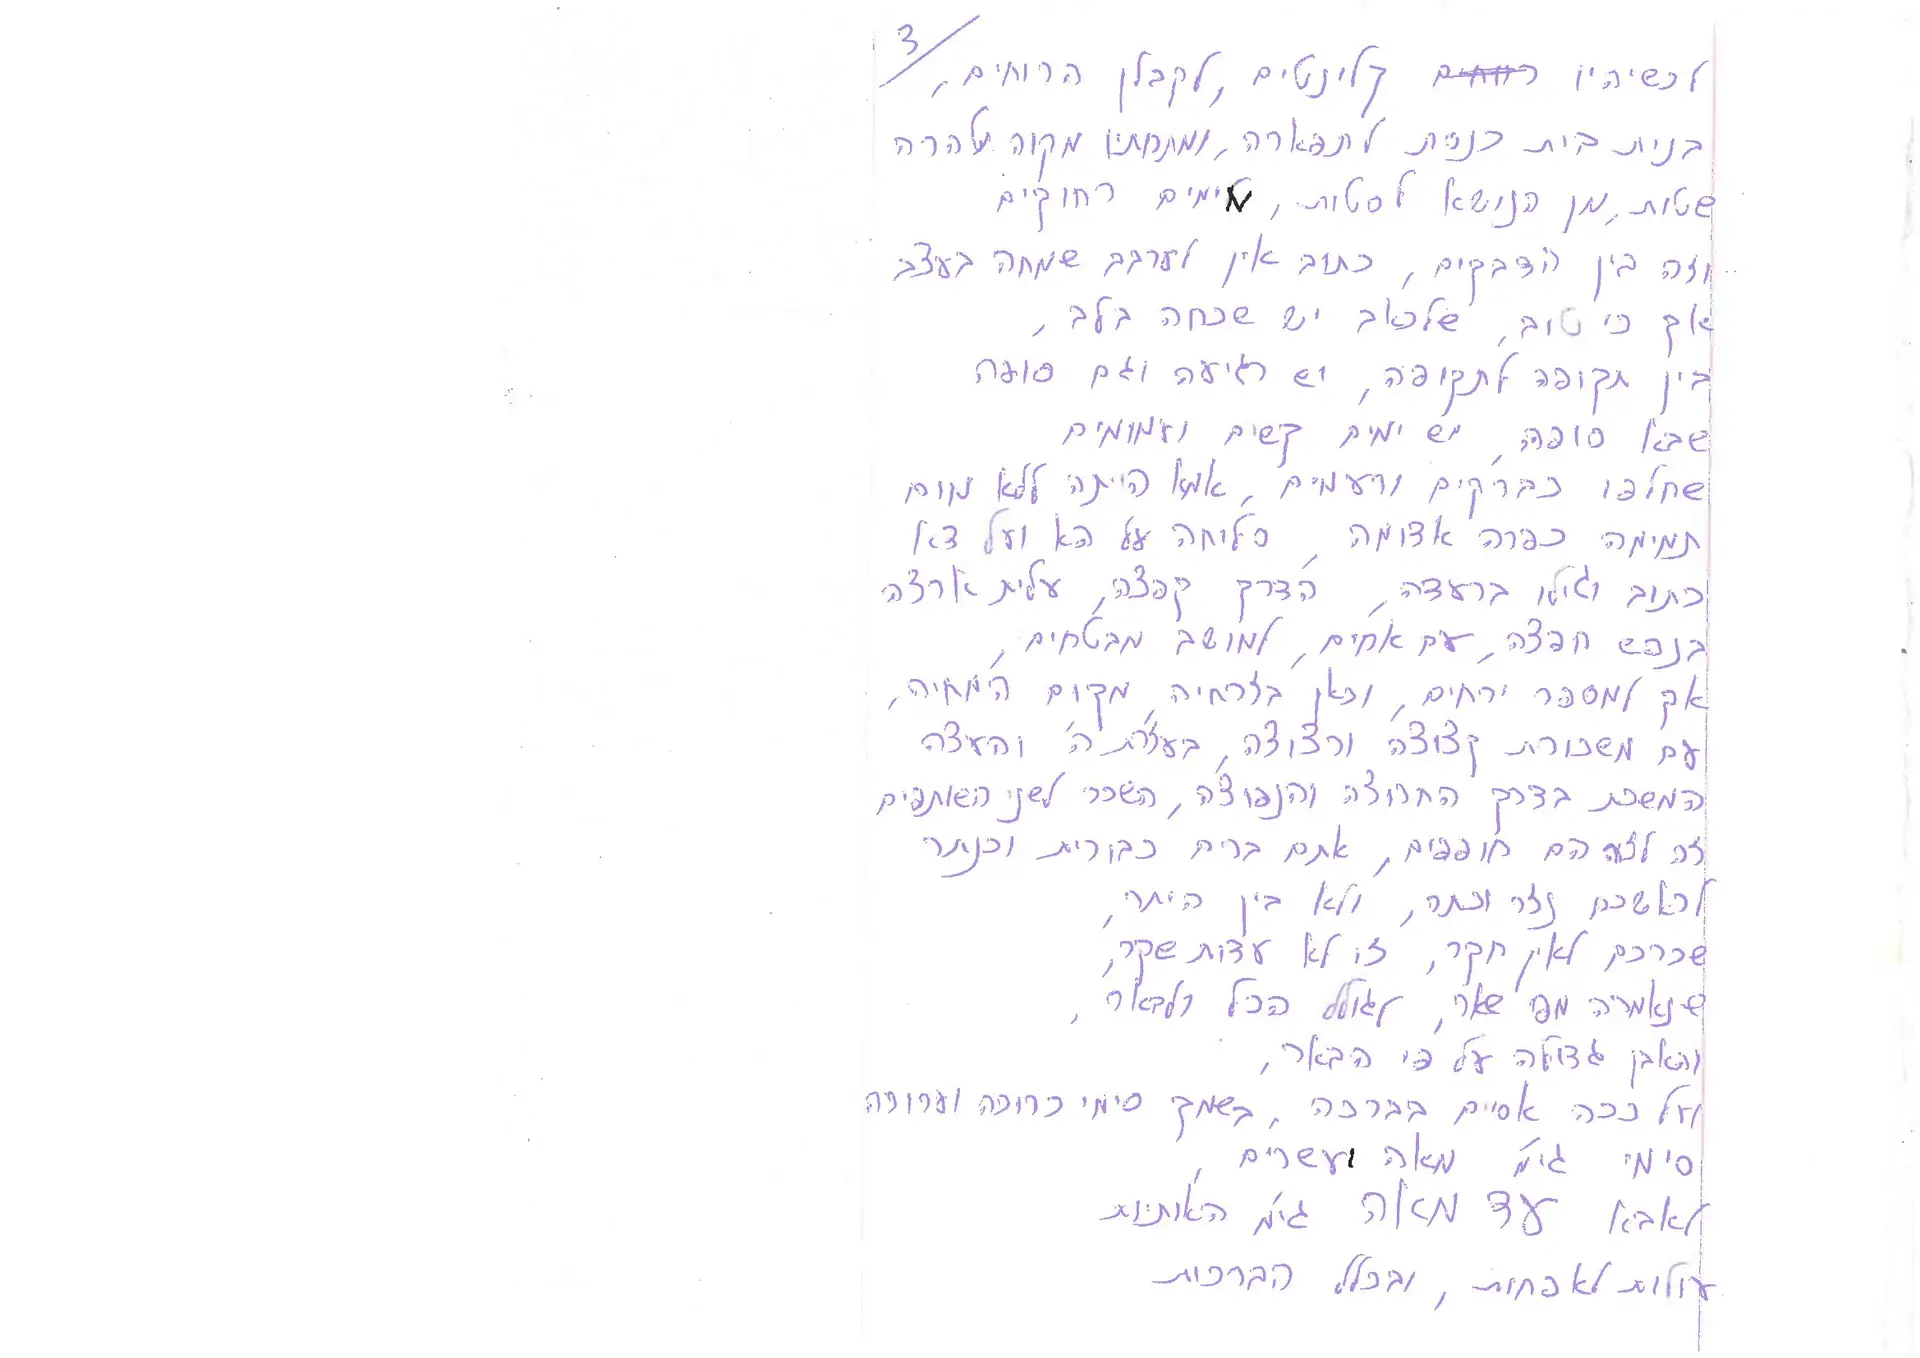 3
לכשיהיו רווחים קלינטים, לקבלן הרוחים,
בנית בית כנסית לתפארה, ומתחתיו מקוה טהרה
שטות, מן הנושא לסטות, מימים רחוקים
וזה בין הדבקים, כתוב אין לערבב שמחה בעצב
אך כי טוב, שלכאב יש שכחה בלב,
בין תקופה לתקופה, יש רגיעה וגם סופה
שבא סופה, יש ימים קשים ועמומים
שחלפו כברקים ורעמים, אמא הייתה ללא מום
תמימה כפרה אדומה, סליחה על הא ועל דא
כתוב וגילו ברעדה, הדרך קפצה, עלית ארצה
בנפש חפצה, עם אחים, למושב מבטחים,
אך למספר ירחים, וכאן בזרחיה, מקום המחיה,
עם משכורת קצוצה ורצוצה, בעזרת ה' והעצה
המשכת בדרך החרוצה והנפוצה, השכר לשני השותפים
זה לזה הם חופפים, אתם ברים כבורית וכנתר
לראשכם נזר וכתר, ולא בין היתר,
שכרכם לאין חקר, זו לא עדות שקר,
שנאמרה מפי שאר, לגולל הכל ולבאר,
והאבן גדולה על פי הבאר,
ועל ככה אסיים בברכה, בשמך סימי כרוכה וערוכה
סימי גימ' מאה ועשרים,
לאבא עד מאה גימ' האותיות
עולות לאפחות, ובכלל הברכות